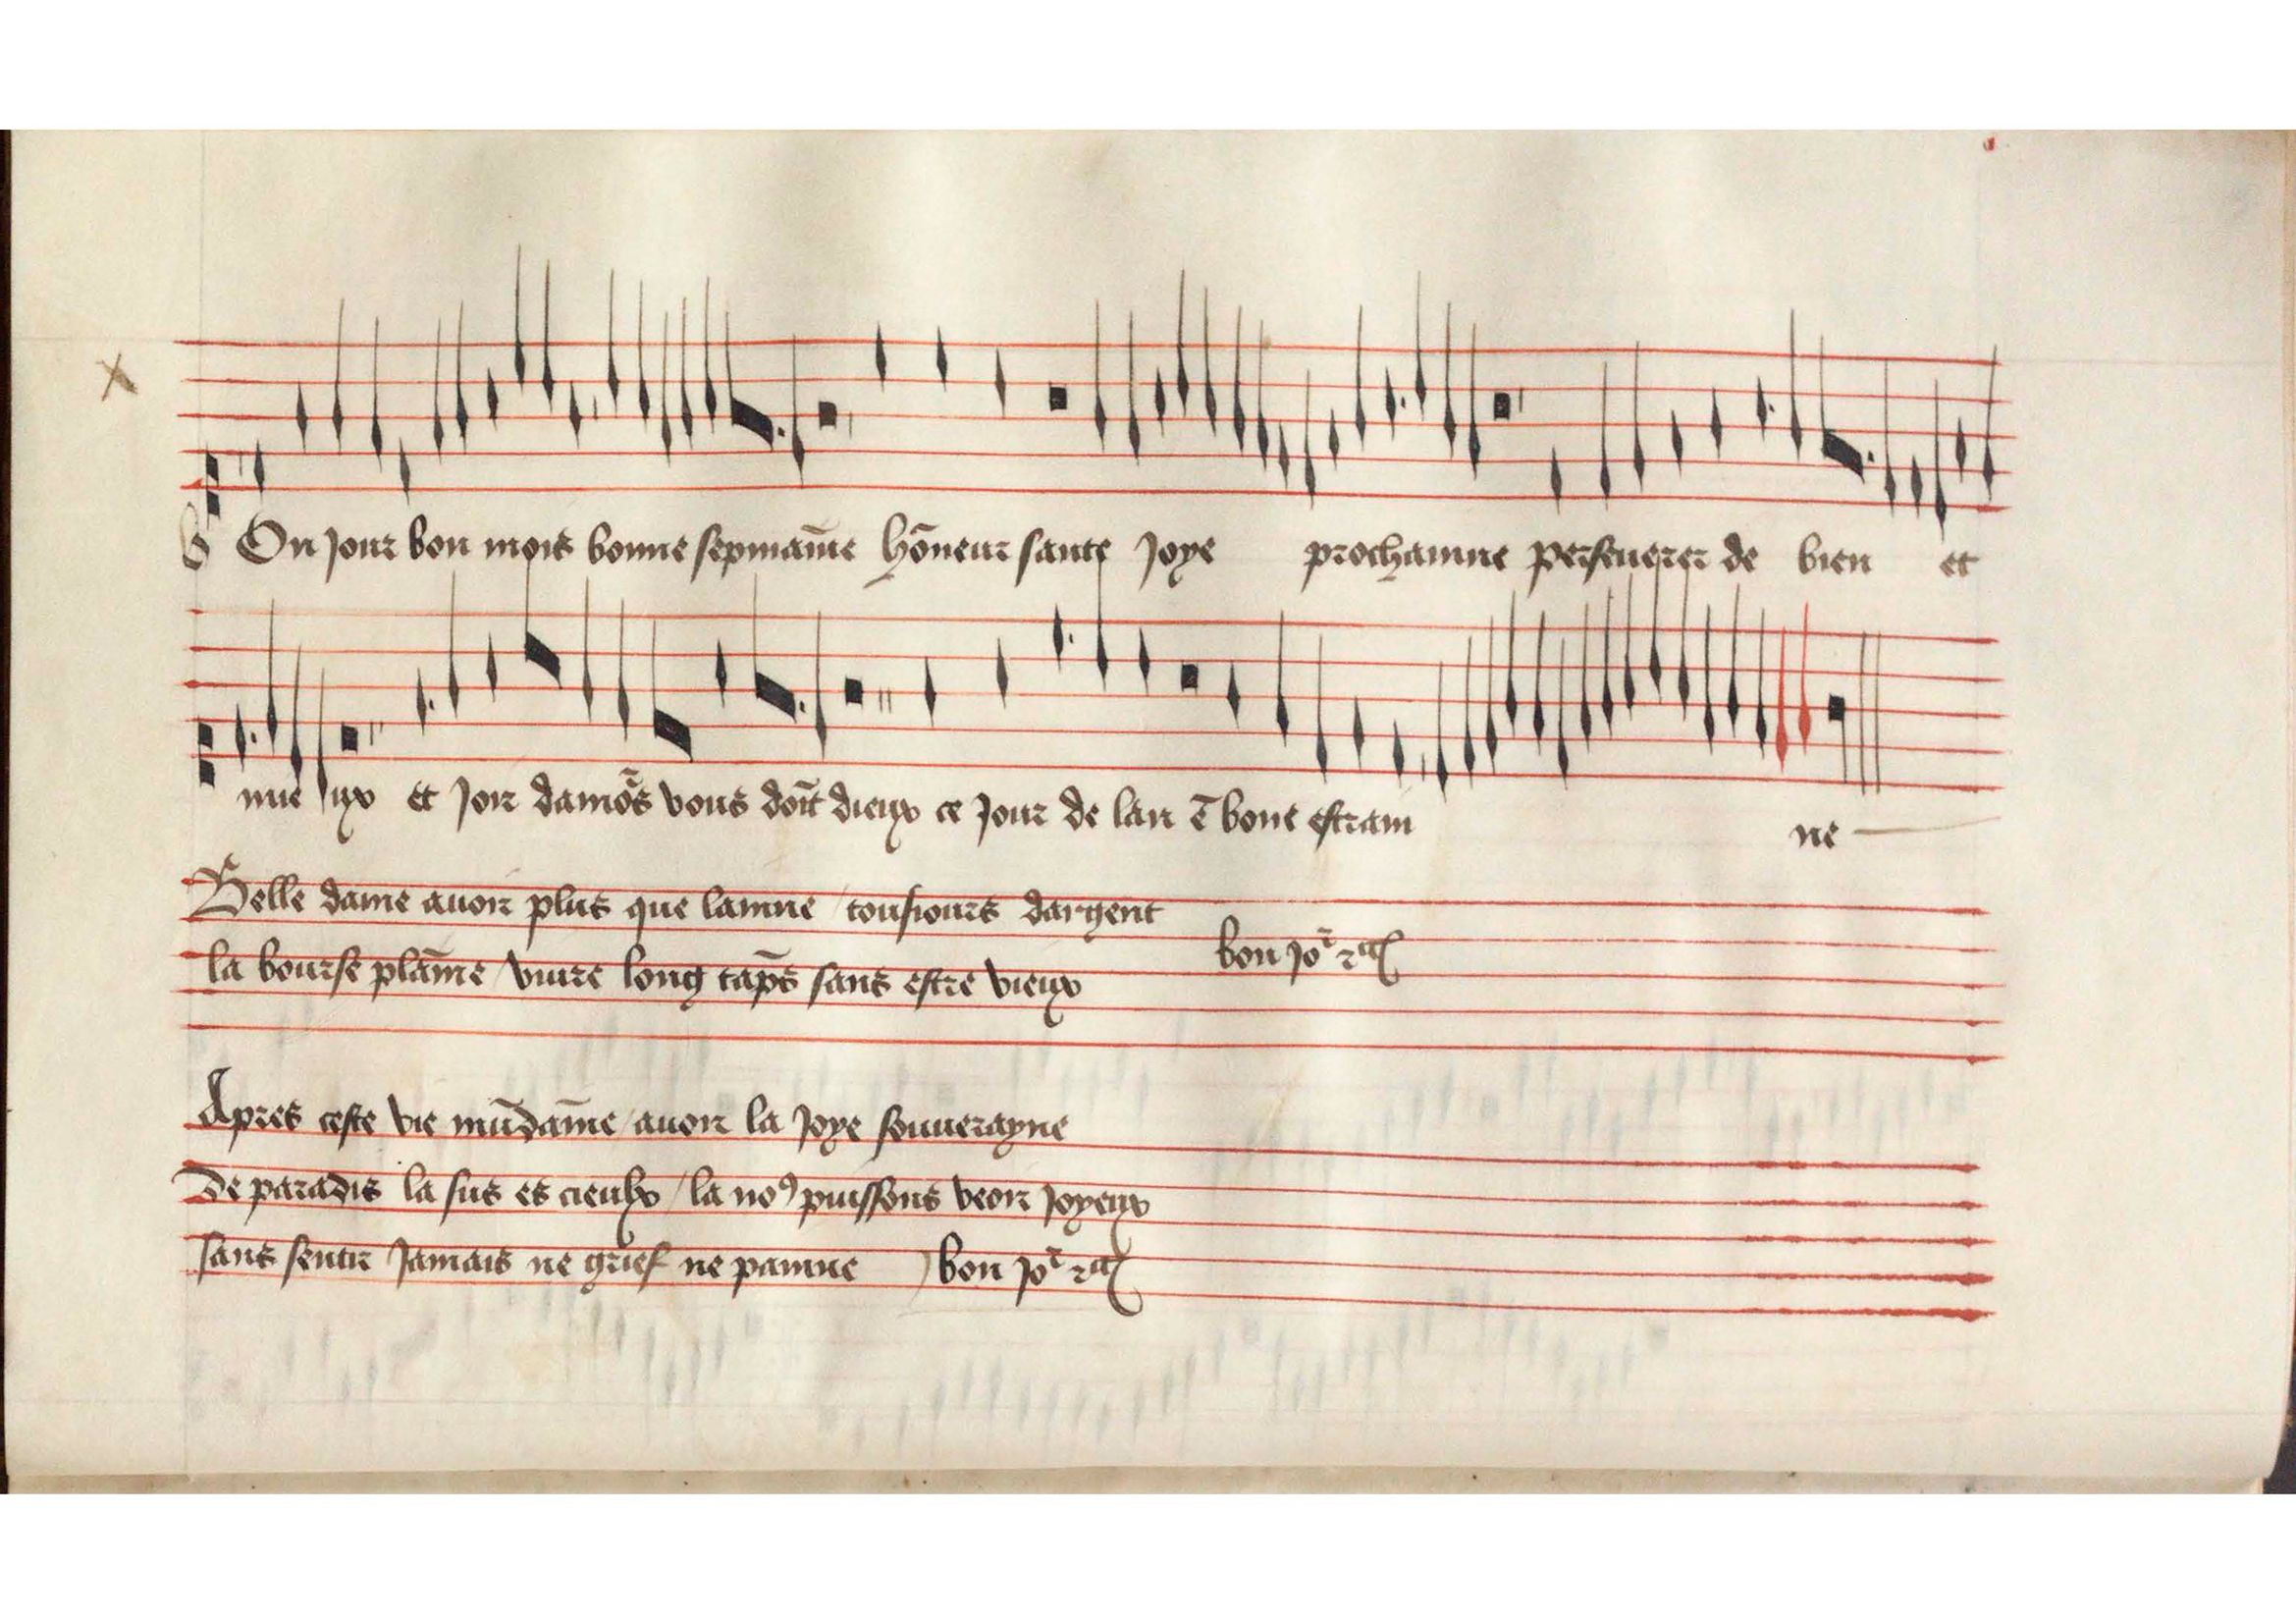 BOn jour bon mois bonne sepmain̄e hōneur sante joye prochainne perseuerer de bien et
mie ux et joir damōs vous doīt dieux ce jour de lan ē bone estrain ne
Belle dame auoir plus que lainne / tousiours dargent
la bourse plaīne / viure long tāps sans estre vieux
bon jor̄ zc
Apres ceste vie mūdain̄e / auoir la joye souuerayne
De paradis la sus es cieulx / la noꝰ puissons veoir joyeux
sans sentir jamais ne grief ne painne bon jor̄ zc